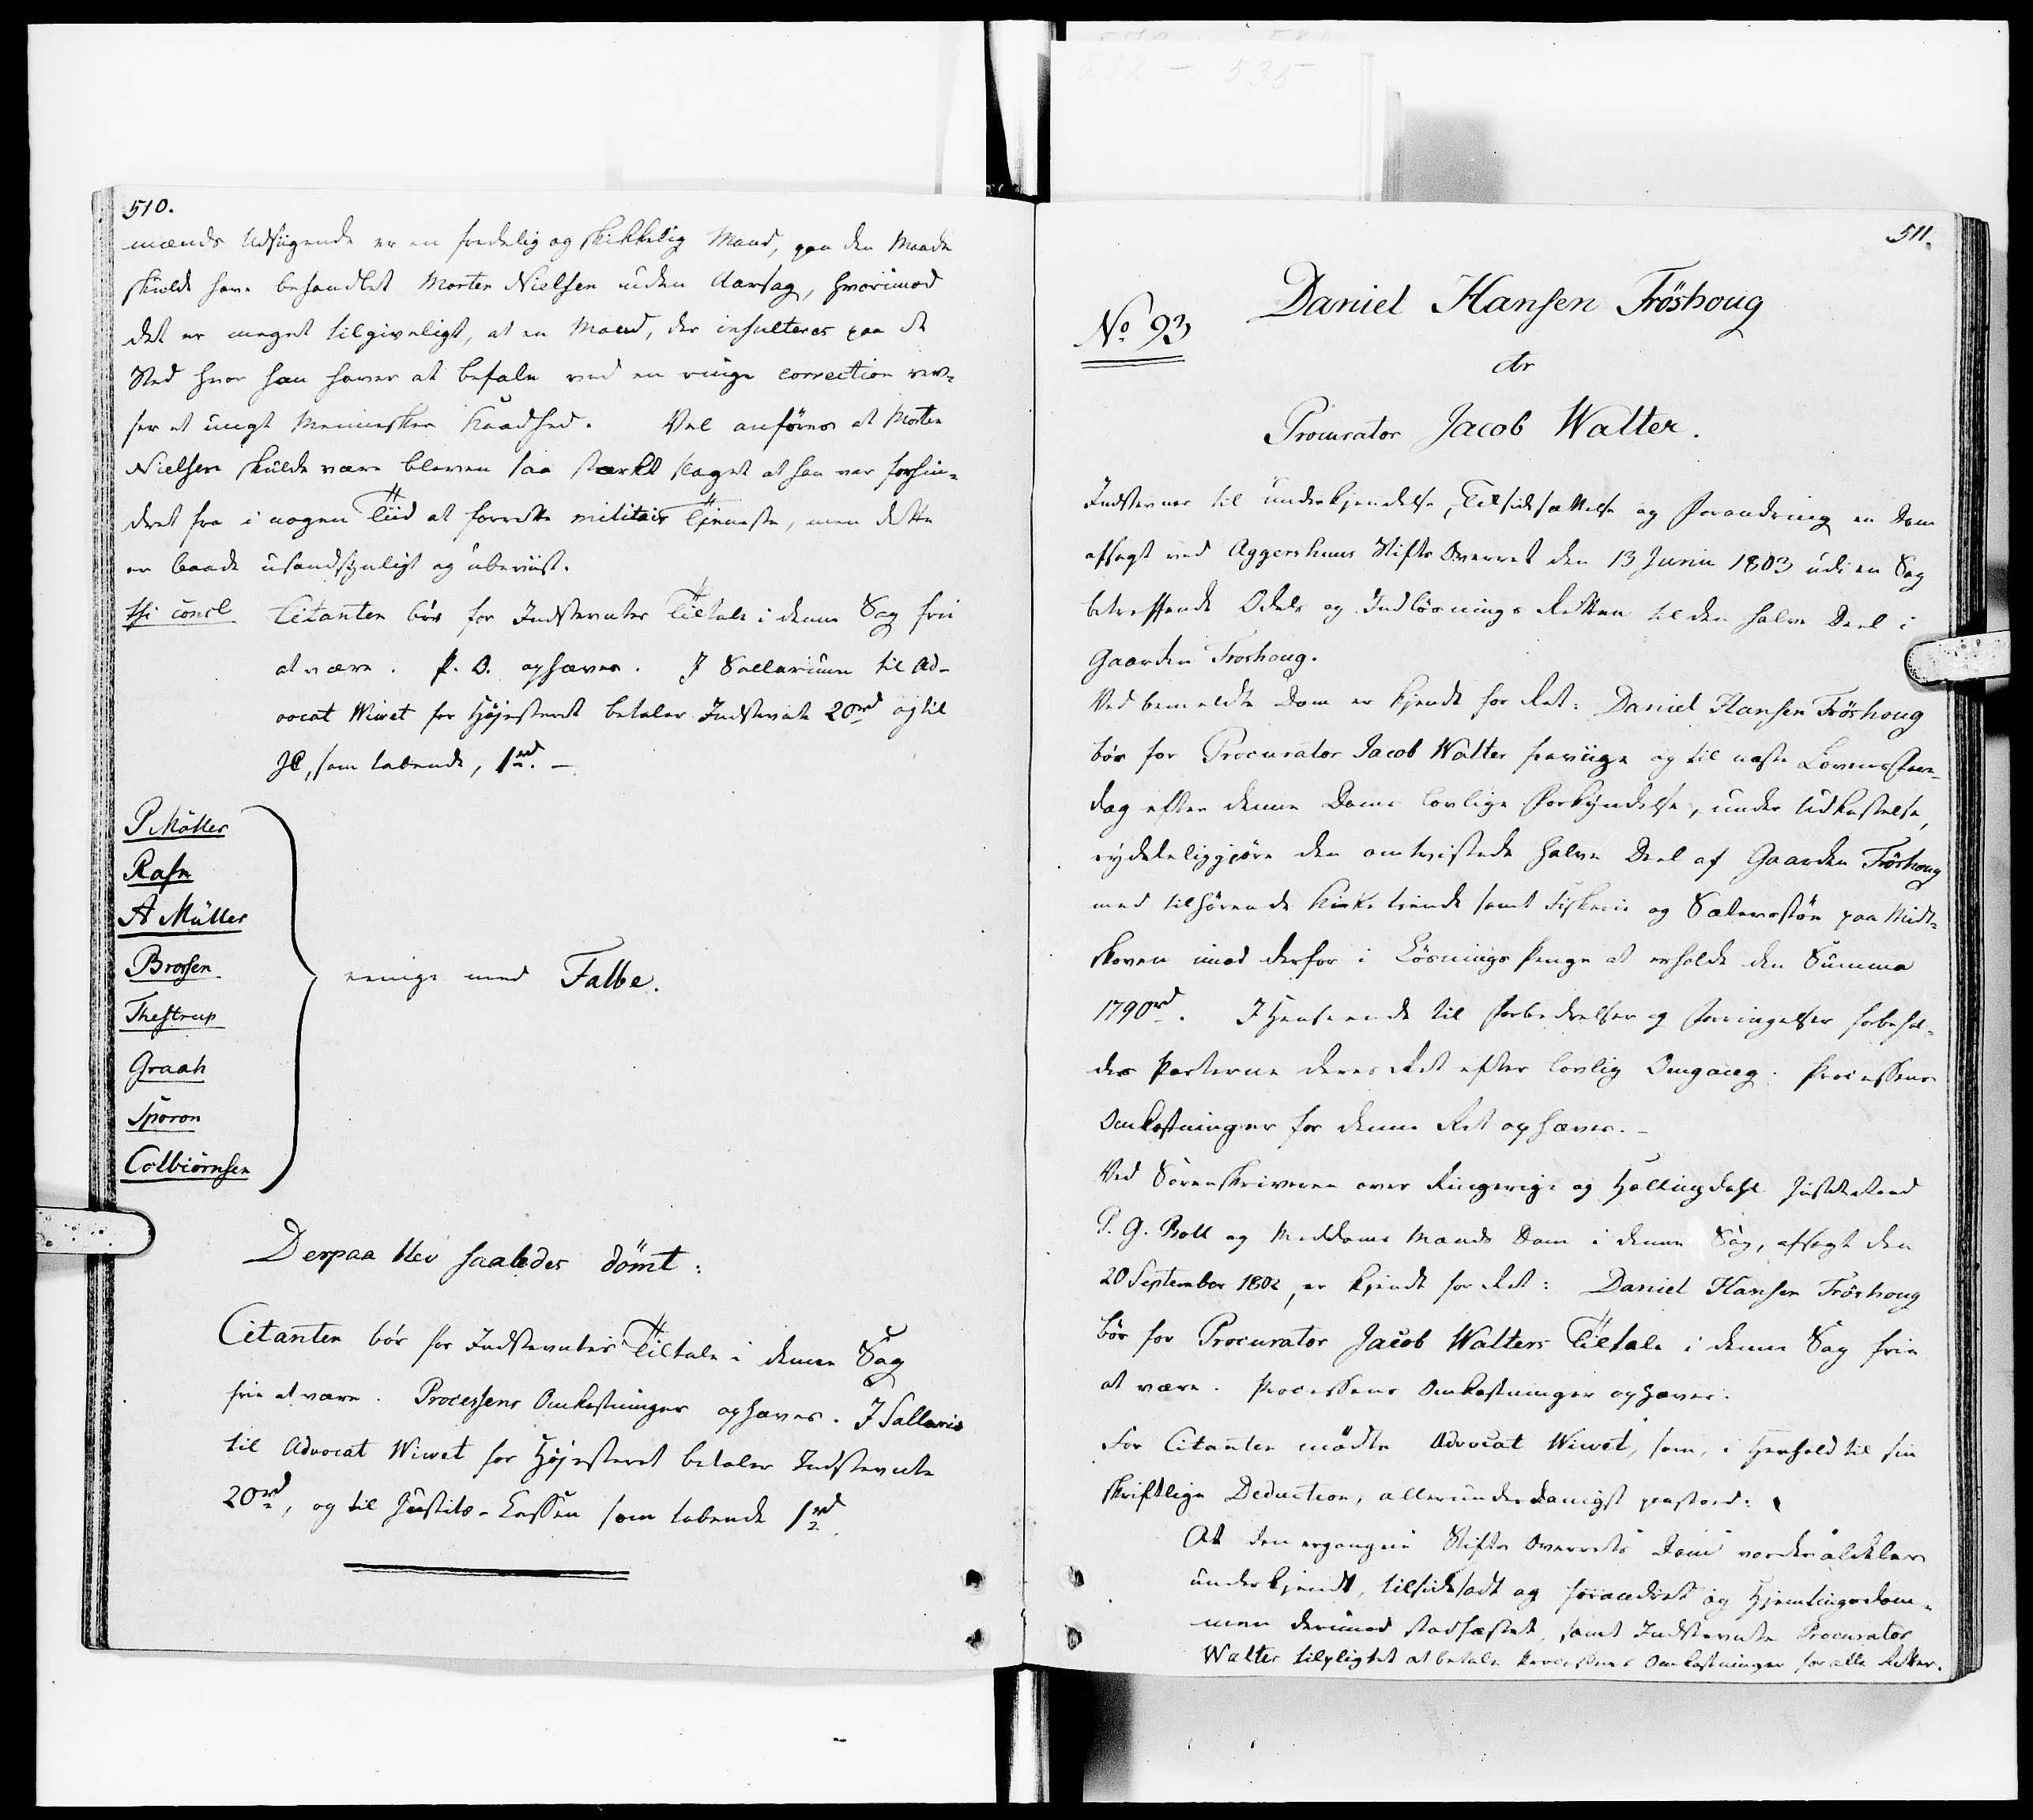 510.
mænds Udsigende er en fredelig og skikkelig Mand, paa den Maade
skulde have behandlet Morten Nielsen uden Aarsag, hvorimod
det er meget tilgiveligt, at en Mand, der insulteres paa det
Sted hvor han haver at befale ved en ringe correction rev-
ser et ungt Menneskes Kaadhed. Vel anføres at Morten
Nielsen skulde være bleven saa stærkt slaget at han var forhin-
dret fra i nogen Tiid at forrette militair Tjeneste, men dette
er baade usandsynligt og ubeviist.
thi concl Citanten bør for Indstevntes Tiltale i denne Sag frie
at være. P. O. ophæves. I Sallarium til Ad-
vocat Wivet for Højesteret betaler Indstevnte 20rd og til
JC, som tabende, 1/2rd. —
P Möller
Rafn
A Müller
Brorsen
Thestrup
Graah
Sporon
Colbiörnsen
eenige med Falbe.
Derpaa blev saaledes dömt:
Citanten bör for Indstevntes Tiltale i denne Sag
frie at være. Processens Omkostninger ophæves. I Sallario
til Advocat Wivet for Højesteret betaler Indstevnte
20rd, og til Justits-Cassen som tabende 1/2rd.
511.
No 93
Daniel Hansen Fröshoug
ctr
Procurator Jacob Walter.
Indstevner til underkjendelse, Tilsidesættelse og Forandring en Dom
afsagt ved Aggershuus Stifts Overret den 13 Junii 1803 udi en Sag
betreffende Odels og Indløsnings Retten til den halve Deel i
Gaarden Froshoug.
Ved bemeldte Dom er kjendt for Ret: Daniel Hansen Fröshoug
bör for Procurator Jacob Walter fraviige og til næste Lovens Fare-
dag efter denne Doms lovlige Forkyndelse, under Udkastelse,
ryddeliggjøre den omtvistede halve Deel af Gaarden Fröshoug
med tilhørende Kirketiende samt Fiskerie og Sæterstøe paa Midt-
skoven imod derfor i Løsnings Penge at erholde den Summa
1790rd. I Henseende til Forbedrelser og Forringelser forbehol-
des Parterne deres Ret efter lovlig Omgang. Processens
Omkostninger for denne Ret ophæves. —
Ved Sorenskriveren over Ringerige og Hallingdahl Justitsraad
P. G. Boll og Meddoms Mænds Dom i denne Sag, afsagt den
20 September 1802, er kjendt for Ret: Daniel Hansen Fröshoug
bör for Procurator Jacob Walters Tiltale i denne Sag frie
at være. Processens Omkostninger ophæves.
For Citanten mødte Advocat Wivet, som, i Henhold til sin
skriftlige Deduction, allerunderdanigst paastod:
At den ergangne Stifts Overrets Dom vorder aldeles
underkjendt, tilsidesadt og forandret og Hjemtingsdom-
men derimod stadfæstet, samt Indstevnte Procurator
Walter tilpligtet at betale Processens Omkostninger for alle Retter.